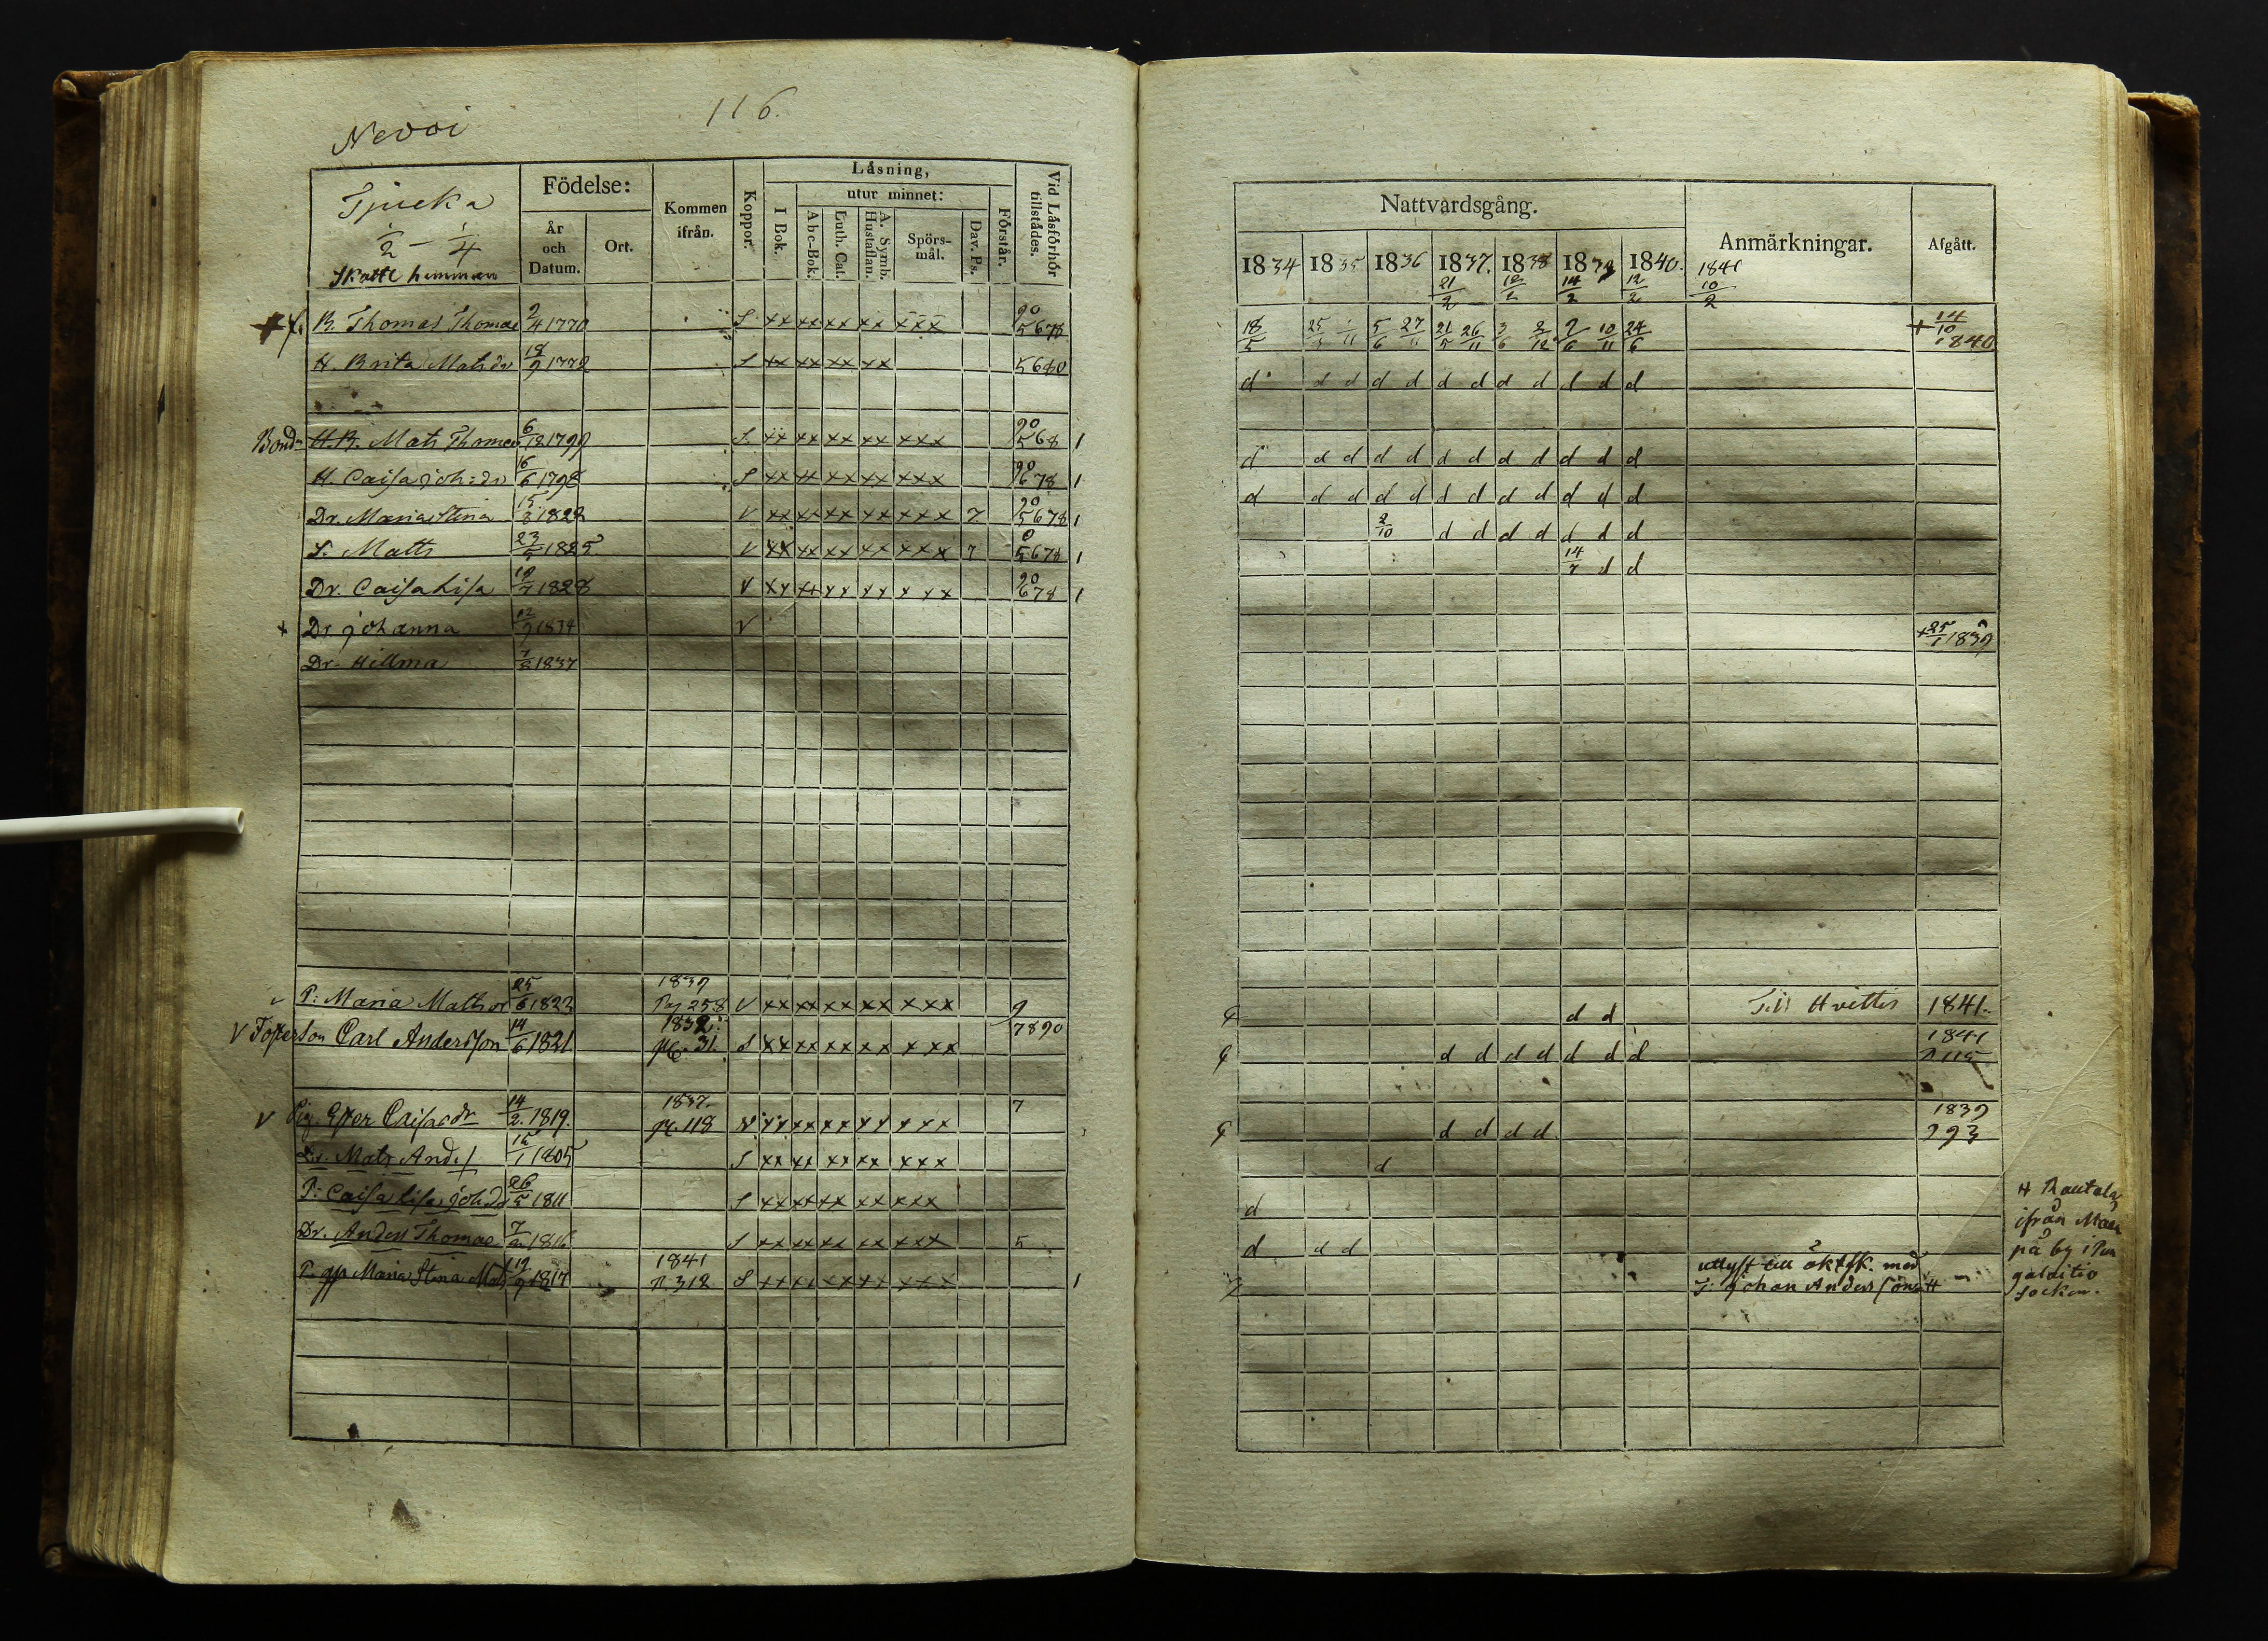 116.
Nevoi
Tjucka
1/2 – 1/4
Skatte hemman
Födelse:
År och Datum.
Ort.
Kommen ifrån.
Koppor.
Läsning,
I Bok.
utur minnet:
Abc-Bok.
Luth. Cat.
A. Symb. Hustaflan.
Spörs-mål.
Dav. Ps.
Förstår.
Vid Läsförhör tillstådes.
B. Thomas Thomae 2/4 1770 S xx xx xx xx xxx 90 5678
H. Brita Matsdr 18/9 1772 S xx xx xx xx 5680
Bond. H.B. Mats Thomae 6/12 1799 S. xx xx xx xx xxx 90 568 1
H. Caisa joh:dr 16/6 1798 S xx xx xx xx xxx 90 678 1
Dr. Maria Stina 15/8 1822 V xx xx xx xx xxx 7 90 5678 1
S. Matts 23/5 1825 V xx xx xx xx xxx 7 0 5678 1
Dr. Caisa Lisa 19/7 1828 V xx xx xx xx xxx 90 678 1
x Dr johanna 12/9 1834 V
Dr. Hillma 7/8 1837
P: Maria Mathsdr 25/6 1822 1839 Pag 258 V xx xx xx xx xxx 9
V Fosterson Carl Andersson 14/6 1821 1832 pg. 31. S xx xx xx xx xxx 7890
V Pig. Ester Caisasdr 14/2 1819. 1837. pg. 118 V xx xx xx xx xxx 7
Dr. Mats And.s 15/1 1805 S xx xx xx xx xxx
P: Caisa Lisa joh.dr 26/5 1811 S xx xx xx xx xxx
Dr. Anders Thomae 7/2 1816 S xx xx xx xx xxx 5
P. Maria Stina Mats 19/9 1817 1841 p. 312 S xx xx xx xx xxx 1
Nattvardsgång.
Anmärkningar.
Afgått.
1834 1835 1836 1837. 1838 1839 1840. 1841
21/2 12/2 14/2 12/2 10/2
18/5 25/5 1/11 5/6 27/11 21/5 26/11 3/6 2/12 2/6 10/11 24/6 + 14/10 1840
d d d d d d d d d d d d
d d d d d d d d d d d d
d d d d d d d d d d d d
2/10 d d d d d d d
14/7 d d
+ 25/1 1839
d d Till Hvittis 1841.
d d d d d d d 1841 p. 115
d d d d 1839 p 93
d
d
d d d
utlyst till äktsk. med
S: johan Andersson #
# Rautala
ifrån Maen
på by i Pun
galaitio
Socken.